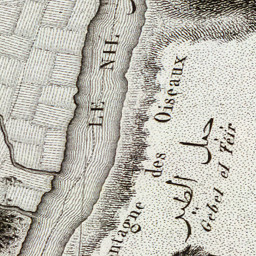 LE NIL
ntagne des Oiseaux
جبل الطير
Gebel el Féïr